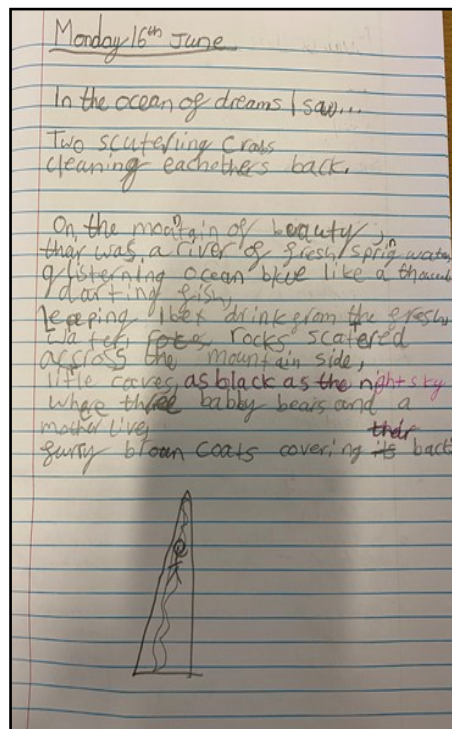 Monday 16th June
In the ocean of dreams I saw...
Two scuterling Crabs
cleaning eachethers back.
On the moantain of beauty,
thar was a river of fresh spring water
glisterning ocean blue like a thousand
darting fish,
Leaping Ibex drink from the fresh
water, rocks scatered
accross the mountain side,
little caves, as black as the night sky
where three babby bears and a
mother live,
furry brown coats covering their back